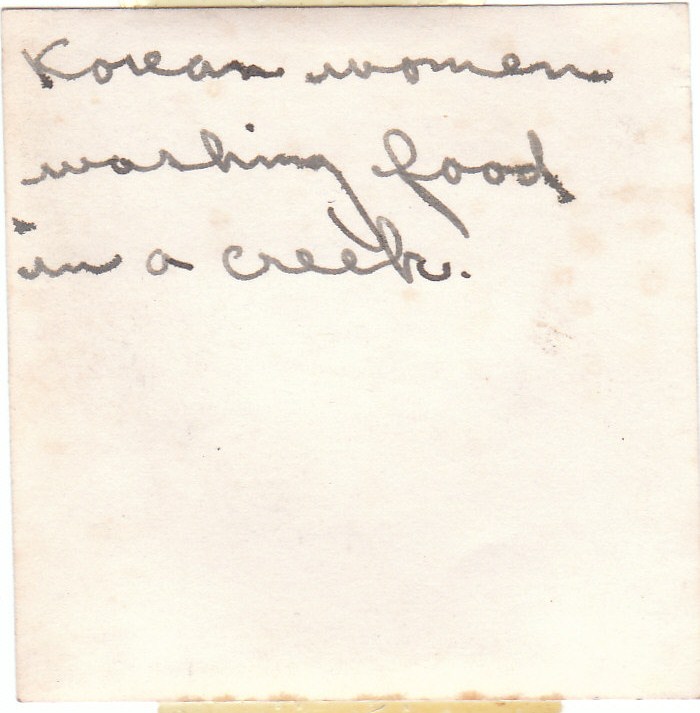 Korean women
washing food
in a creek.